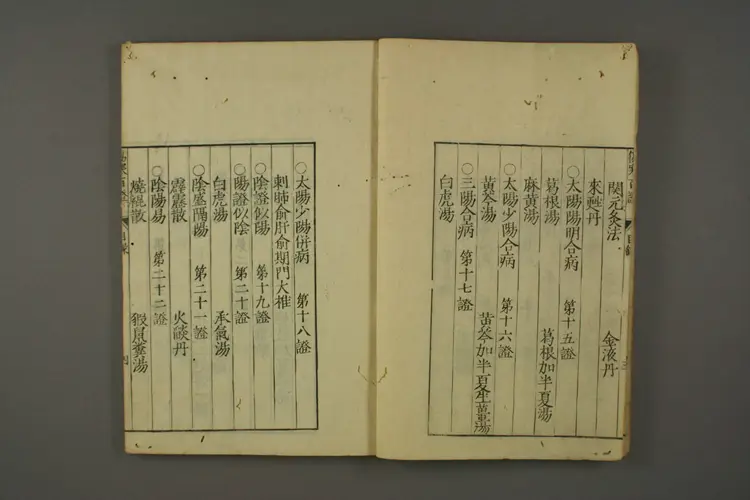 關元灸法
來甦丹 金液丹
○太陽陽明合病 第十五證
葛根湯 葛根加半夏湯
麻黄湯
○太陽少陽合病 第十六證
黄芩湯 黄芩加半夏生薑湯
○三陽合病 第十七證
白虎湯
○太陽少陽併病 第十八證
刺肺俞肝俞期門大椎
○陰證似陽 第十九證
○陽證似陰 第二十證
白虎湯 承氣湯
○陰盛隔陽 第二十一證
霹靂散 火燄丹
○陰陽易 第二十二證
燒裩散 猳鼠糞湯